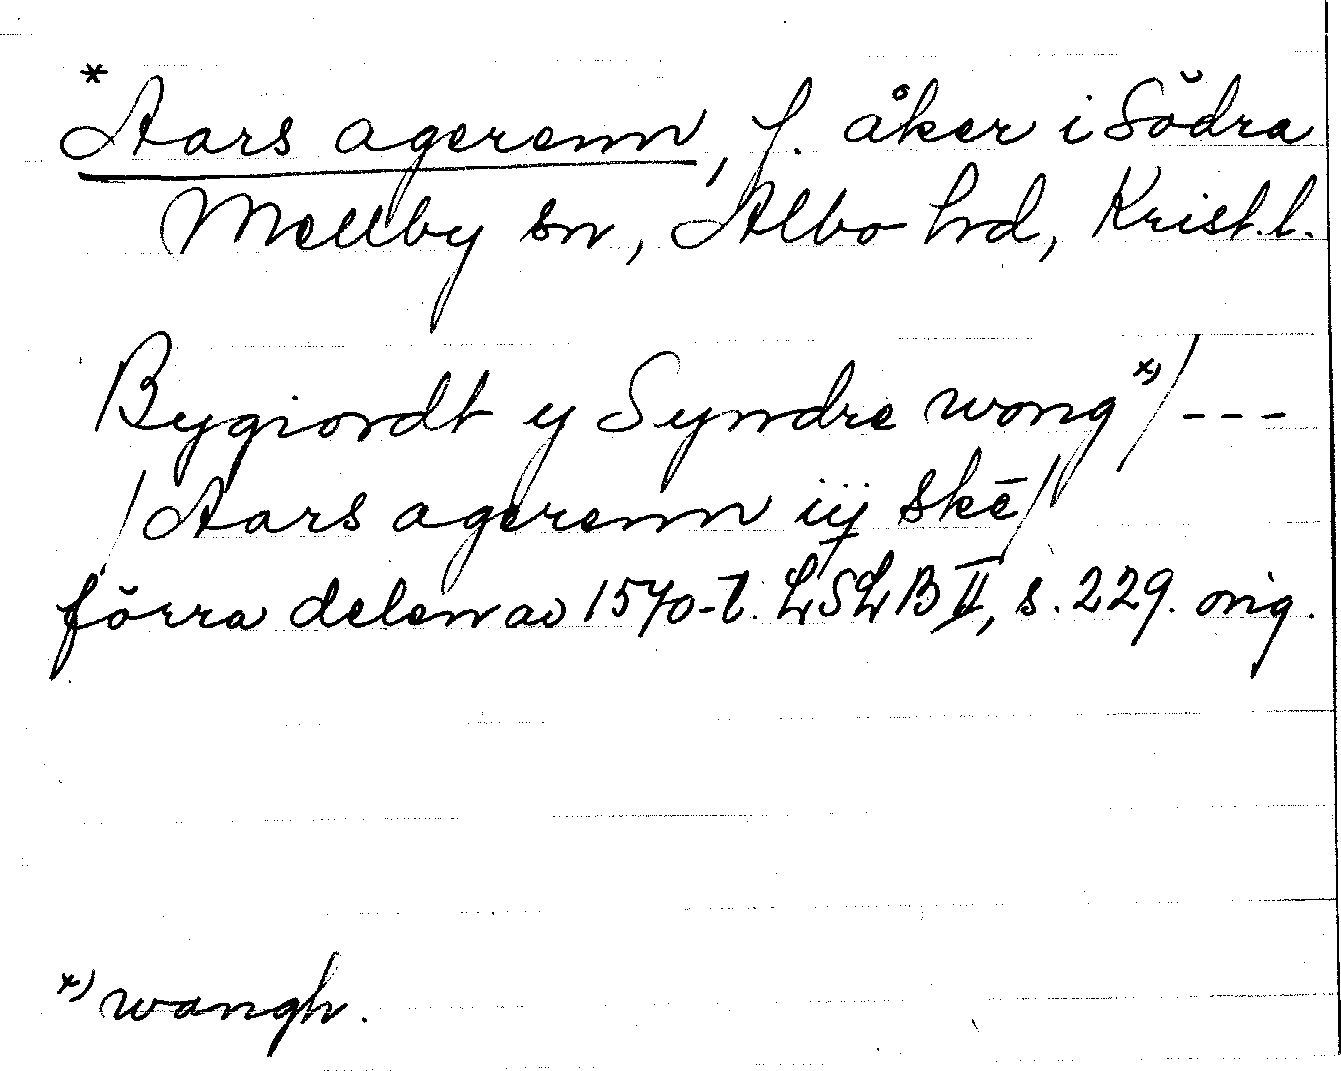 * Aars agerenn, f. åker i Södra
Mellby sn, Albo hrd, Krist.l.
Bygiordt y Syndre wong *) / ---
/ Aars agerenn iij skē /
förra delen av 1570-t. LSLB II, s. 229. orig.
*) wangh.